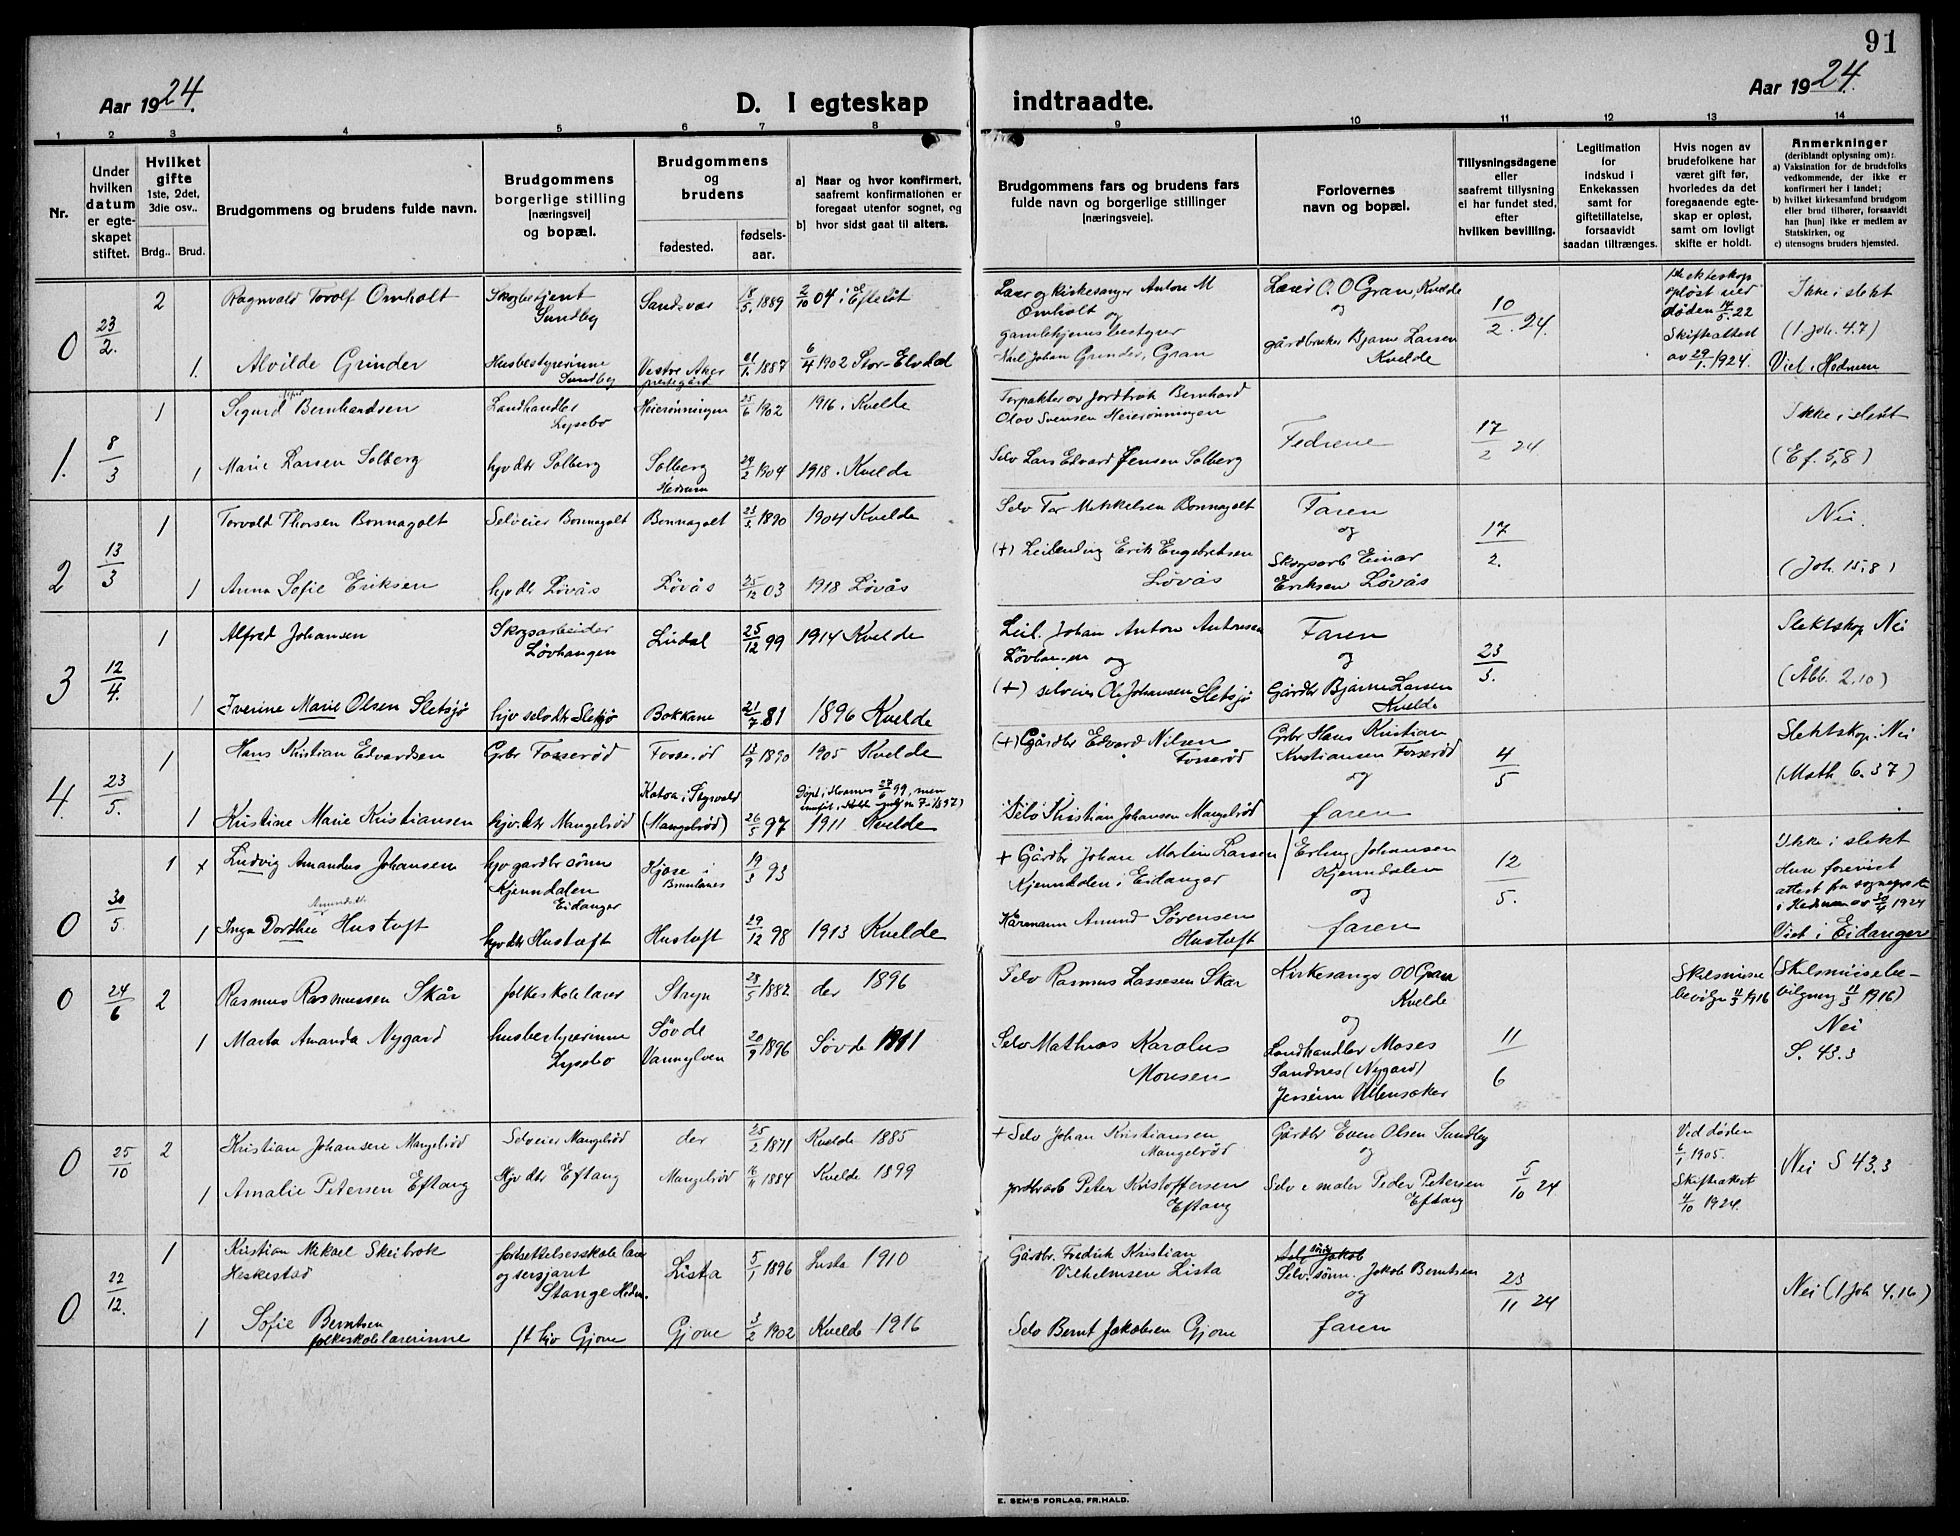 91
Aar 1924.
D. I egteskap
indtraadte.
Aar 1924.
1 2 3 4 5 6 7 8 9 10 11 12 13 14
Nr.
Under hvilken datum er egteskapet stiftet.
Hvilket gifte 1ste, 2det, 3die osv..
Brdg.. Brud.
Brudgommens og brudens fulde navn.
Brudgommens borgerlige stilling [næringsvei] og bopæl.
Brudgommens og brudens
fødested.
fødselsaar.
a) Naar og hvor konfirmert, saafremt konfirmationen er foregaat utenfor sognet, og
b) hvor sidst gaat til alters.
Brudgommens fars og brudens fars fulde navn og borgerlige stillinger [næringsveie].
Forlovernes navn og bopæl.
Tillysningsdagene eller saafremt tillysning ei har fundet sted, efter hvilken bevilling.
Legitimation for indskud i Enkekassen samt for giftetillatelse, forsaavidt saadan tiltrænges.
Hvis nogen av brudefolkene har været gift før, hvorledes da det foregaaende egteskap er opløst, samt om lovligt skifte er holdt.
Anmerkninger
(deriblandt oplysning om):
a) Vaksination for de brudefolks vedkommende, der ikke er konfirmert her i landet;
b) hvilket kirkesamfund brudgom eller brud tilhører, forsaavidt han [hun] ikke er medlem av Statskirken, og
c) utensogns bruders hjemsted.
0 23/2. 2 Ragnvald Torolf Omholt Skogbetjent Sundby Sandsvær 18/5. 1889 2/10 04 i Efteløt
Lærer og kirkesanger Anton M Omholt og
Lærer O. O Gran, Kvelde og
10/2. 24.
1ste ekteskap opløst ved døden 14/5. 22 Skifteattest av 29/1. 1924.
Ikke i slekt (1 Joh. 4.7) Viet i Hedrum
1. Alvilde Grinder Husbestyrerinne Sundby Vestre Aker prestegård 21/1. 1887 6/4 1902 Stor-Elvdal
gamlehjemsbestyrer Karl Johan Grinder, Gran
gårdbruker Bjarne Larsen Kvelde
1. 8/3 1 Sigurd Bernhardsen Landhandler Lysebo Heierønningen 25/6 1902 1916 i Kvelde
Forpakter av jordbruk Bernhard Olav Svensen Heierønningen
Fedrene
17/2 24
Ikke i slekt (Ef. 5,8)
1 Marie Larsen Solberg hjv dtr Solberg Solberg Hedrum 29/2 1904 1918 i Kvelde
Selv Lars Edvard Jensen Solberg
2 13/3 1 Torvald Thorsen Bonnagolt Selveier Bonnagolt Bonnagolt 23/3 1890 1904 Kvelde
Selv Tor Mikkelsen Bonnagolt
Faren og
17/2.
Nei. (Joh. 15,8)
1 Anna Sofie Eriksen hjv dtr Løvås Løvås 25/12 03 1918 Løvås
(+) Leilending Erik Engebretsen Løvås
Skogsarb Einar Eriksen Løvås
3 12/4. 1 Alfred Johansen Skogsarbeider Løvhaugen Lindal 25/12 99 1914 Kvelde
Leil. Johan Anton Antonsen Løvhaugen og
Faren og
23/3.
Slektskap Nei (Åb. 2.10)
1 Iverine Marie Olsen Sletsjø hjv selv dtr Sletsjø Bokkane 21/7 81 1896 Kvelde
(+) selveier Ole Johansen Sletsjø
Gårdbr Bjarne Larsen Kvelde
4. 23/5. 1 Hans Kristian Edvardsen Grbr Fosserød Fosserød 17/9 1890 1905 Kvelde
(+) Gårdbr Edvard Nilsen Fosserød
Grbr Hans Kristian Kristiansen Fosserød og
4/5
Slektskap: Nei (Math 6.37)
1 Kristine Marie Kristiansen hjv. dtr Mangelrød (Mangelrød) 26/5 97 1911 Kvelde
Selv Kristian Johansen Mangelrød
faren
0 30/5. 1 + Ludvig Amandus Johansen hjv gardbr sønn Kjenndalen Eidanger Hjose i Brunlanes 19/3 93
+ Gårdbr Johan Martin Larsen Kjenndalen i Eidanger
Erling Johansen Kjenndalen og
12/5.
Ikke i slekt Hun forevist attest fra sogneprsten i Hedrum av 1924 Viet i Eidanger
1 Inga Dorthee Amundsdtr Hustoft hjv dtr Hustoft Hustoft 29/12 98 1913 Kvelde
Kårmann Amund Sørensen Hustoft
faren
0 24/6 2 Rasmus Rasmussen Skår folkeskolelærer Stryn 28/5 1882 der 1896
Selv Rasmus Lassesen Skår
Kirkesanger OO Gran Kvelde og
11/6
Skilsmisse bevilgn 11/3 1916
(Skilsmissebevilgning 11/3 1916) Nei S. 43.3
1 Marta Amanda Nygard husbestyrerinne Lysebo Søvde Vannylven 20/9 1896 Søvde 1911
Selv Mathias Karolus Monsen
Landhandler Moses Sandnes (Nygard) Jesseim Ullensaker
0 25/10 2 Kristian Johansen Mangelrød Selveier Mangelrød der 25/2 1871 Kvelde 1885
+ Selv Johan Kristiansen Mangelrød
Gårdbr Even Olsen Sundby og
5/10 24
Ved døden 6/1 1905. Skifteattest 4/10 1924.
Nei S 43.3
1 Amalie Petersen Eftang Hjv dtr Eftang Mangelrød 16/11 1884 Kvelde 1899
jordbrarb Peter Kristoffersen Eftang
Selv e maler Peder Petersen Eftang
0 22/12. 1 Kristian Mikael Skeibrok Heskestad fortsettelsesskolelærer og sersjant Stange Hedm. Lista 5/1 1896 Lista 1910
Gårdbr. Fredrik Kristian Vilhelmsen Lista
Selv. sønn. Jakob Berntsen og
23/11 24
Nei (1 Joh 4.16)
1 Sofie Berntsen folkeskolelærerinne ft hjv Gjone Gjone 3/2 1902 Kvelde 1916
Selv Bernt Jakobsen Gjone
faren
E. SEM'S FORLAG, FR.HALD.